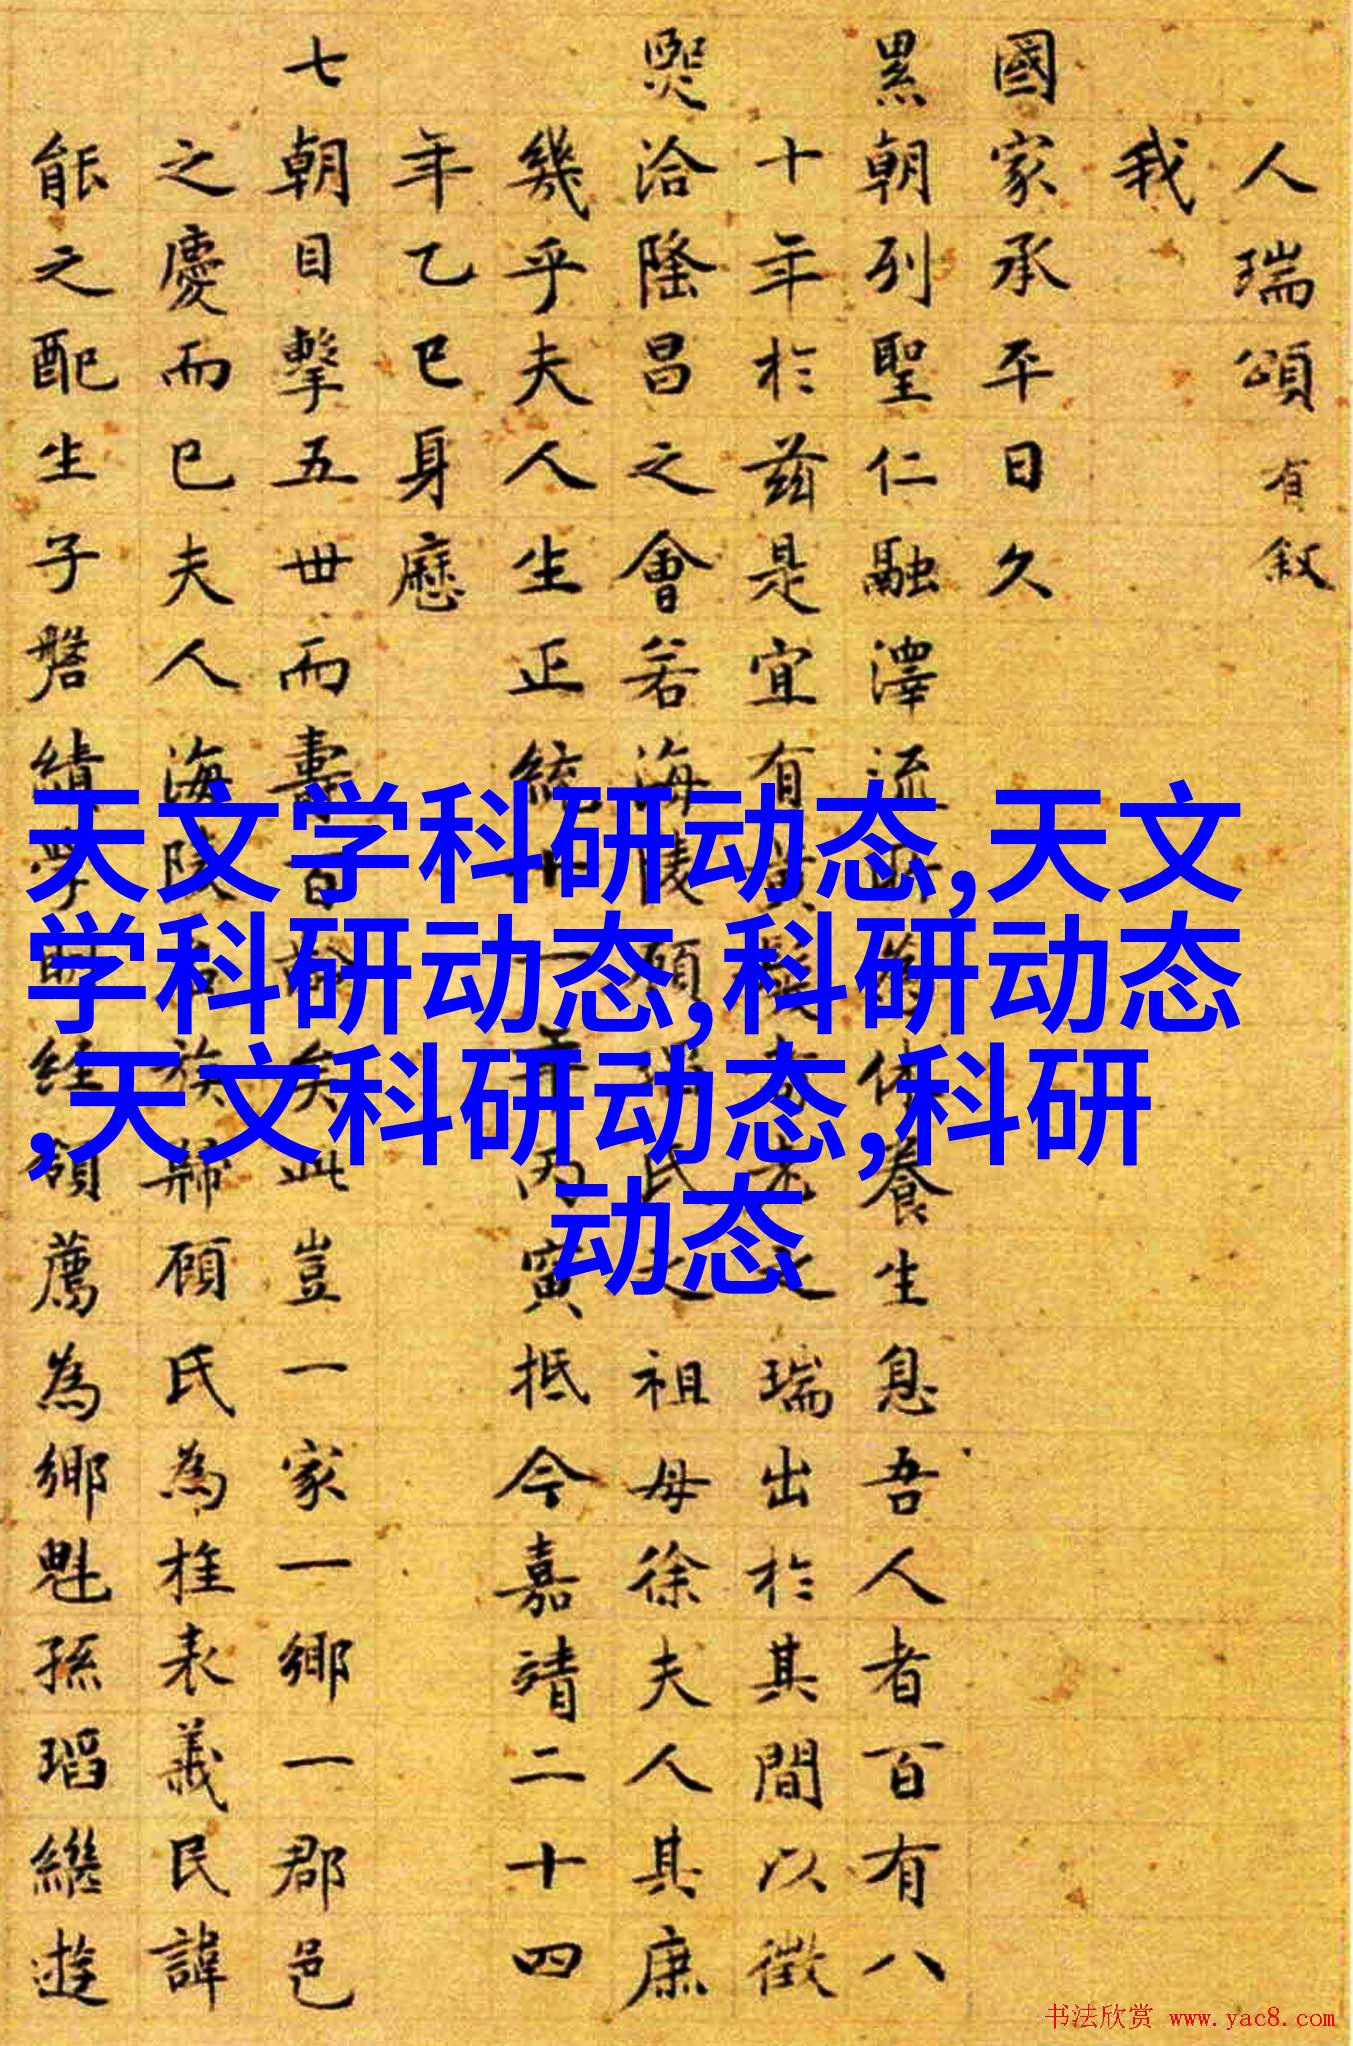 人瑞頌有叙
我
國家承平日久
累朝列聖仁融澤流養生息吾人者百有八
十年於兹是宜有之瑞出於其間以徵
熙洽隆昌之會若海陵顧氏之祖母徐夫人其庶
幾乎夫人生正統十一年丙寅抵今嘉靖二十四
年乙巳身歷
七朝目擊五世而壽百齡矣此豈一家一鄉一郡邑
之慶而已夫人海陵族歸顧氏為旌表義民諱
能之配生子磐績學明經領薦為鄉魁孫瑫繼遊
天文学科研动态,天文
学科研动态,科研动态
,天文科研动态,科研
动态
书法欣赏 www.yac8.com